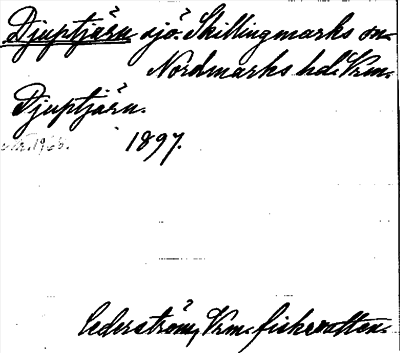 Djuptjärn sjö. Skillingmarks sn.
Nordmarks hd. Vrm.
Djuptjärn.
1897.
Cederström, Vrm. fiskevatten.